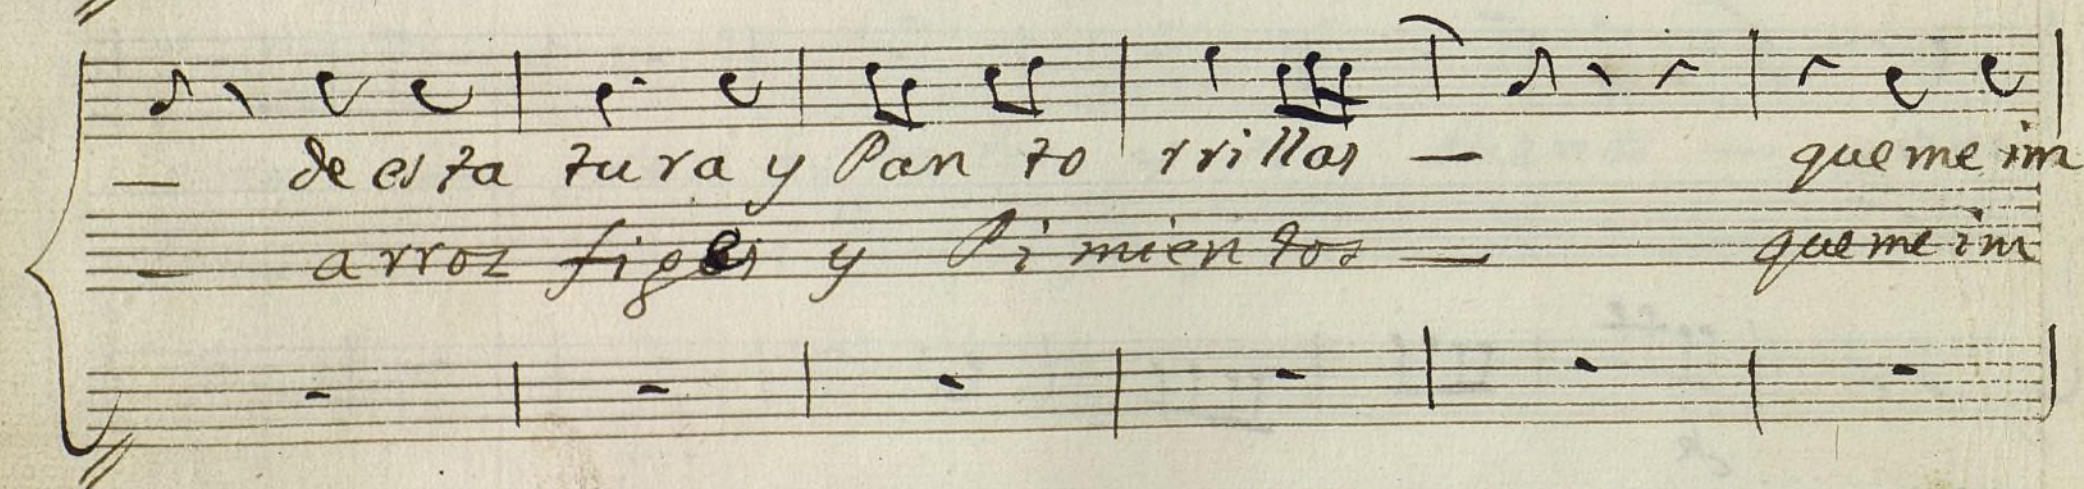 — de esta tura y Pan to rrillas — que me im
— arroz figes y Pi mientos — que me im